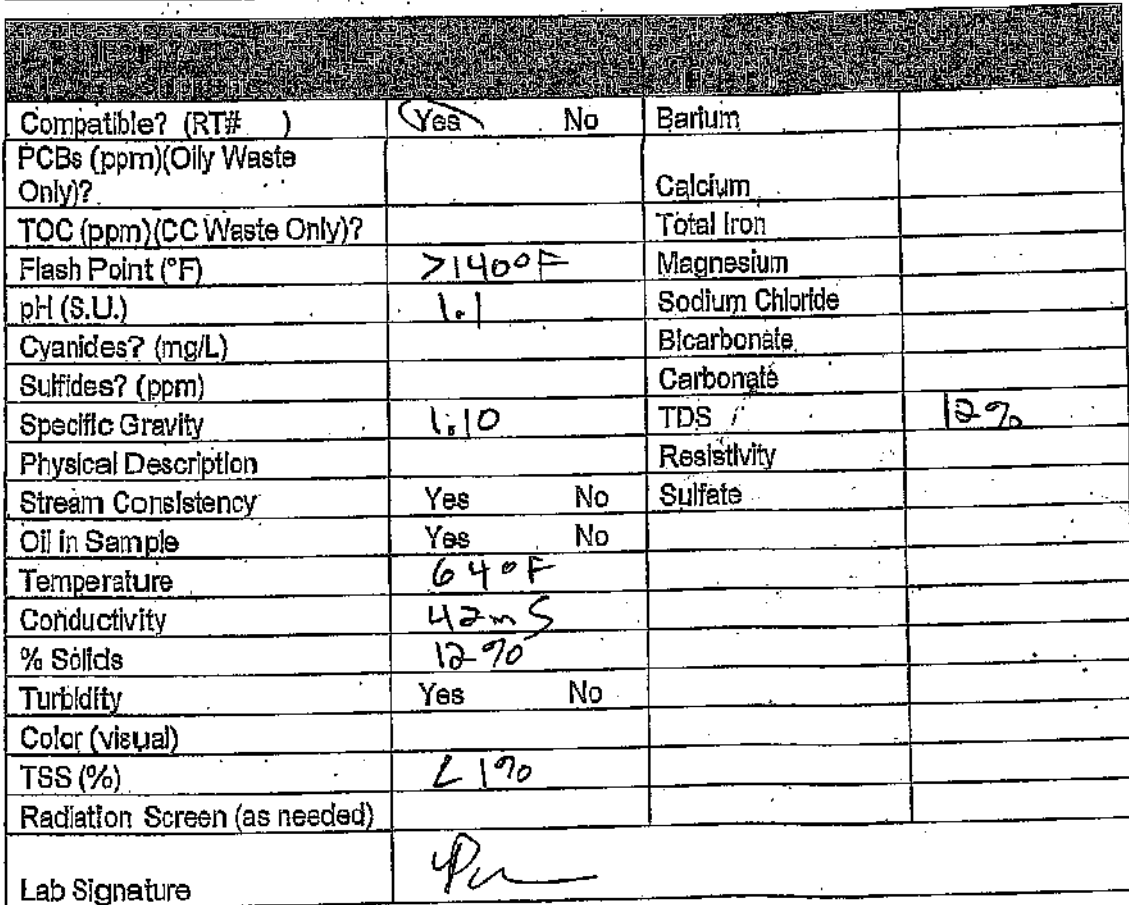 Compatible? (RT# ) Yes No Barium
PCBs (ppm)(Oily Waste
Only)? Calcium
TOC (ppm)(CC Waste Only)? Total Iron
Flash Point (°F) >140°F Magnesium
pH (S.U.) 1.1 Sodium Chloride
Cyanides? (mg/L) Bicarbonate
Sulfides? (ppm) Carbonate
Specific Gravity 1.10 TDS 12%
Physical Description Resistivity
Stream Consistency Yes No Sulfate
Oil in Sample Yes No
Temperature 64°F
Conductivity 42mS
% Solids 12%
Turbidity Yes No
Color (visual)
TSS (%) <1%
Radiation Screen (as needed)
Lab Signature